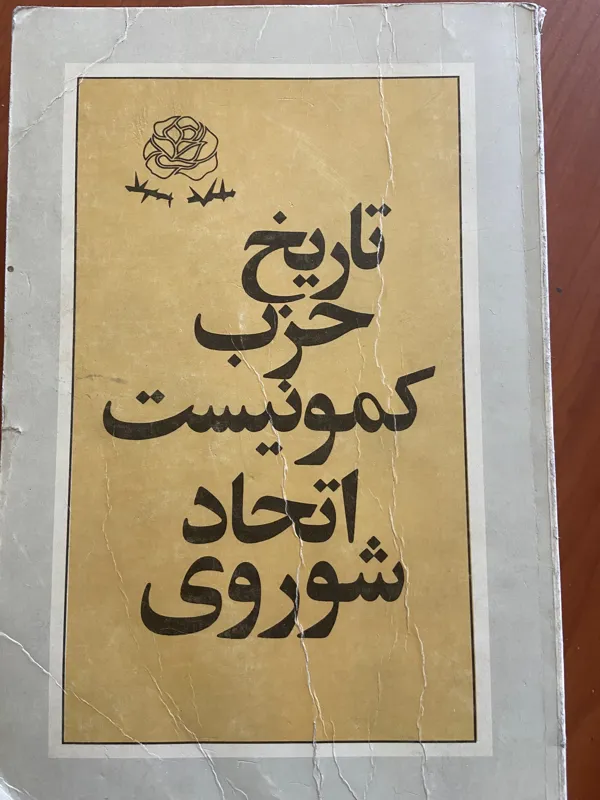 تاریخ
حزب
کمونیست
اتحاد
شوروی